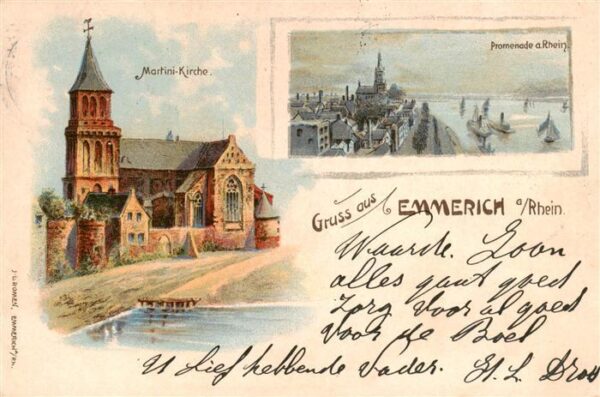 Martini-Kirche.
Promenade a. Rhein.
Gruss aus EMMERICH a/Rhein.
Waarde. Zoon
alles gaat goed
zorg voor al goed
voor de Boel
U lief hebbende Vader.
EMMERICH a/RH.